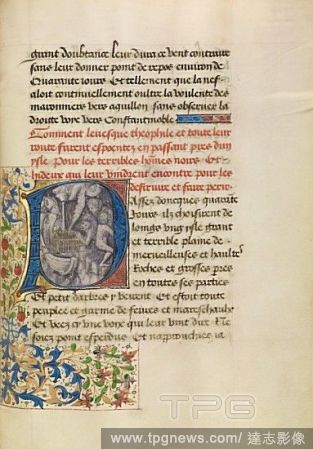 grant doubtance leur dura ce vent contraire
sans leur donner point de repos environ de
Quarante iours Et tellement que la nef
aloit continuellement oultre la voulente des
maronniers vers aquillon sans observer la
droitte voye vers Constantinoble
Comment levesque theophile et toute leur
route furent espoentez en passant pres dun
ysle Pour les terribles hommes noirs Et
hideux qui leur vindrent encontre pour les
destruire et faire perir
Assez doncques quarante
iours ilz choisirent de
loings ung ysle grant
et terrible plaine de
merveilleuses et haultes
Roches et grosses pierres
en toutes ses parties
Et petit darbres y veirent Et estoit toute
peuplee et garnie de fevres et mareschaulx
Et veez cy une voix qui leur vint dire Ne
soiez point esperdus Et napprouchies ia
TPG
www.tpgnews.com/ 達志影像